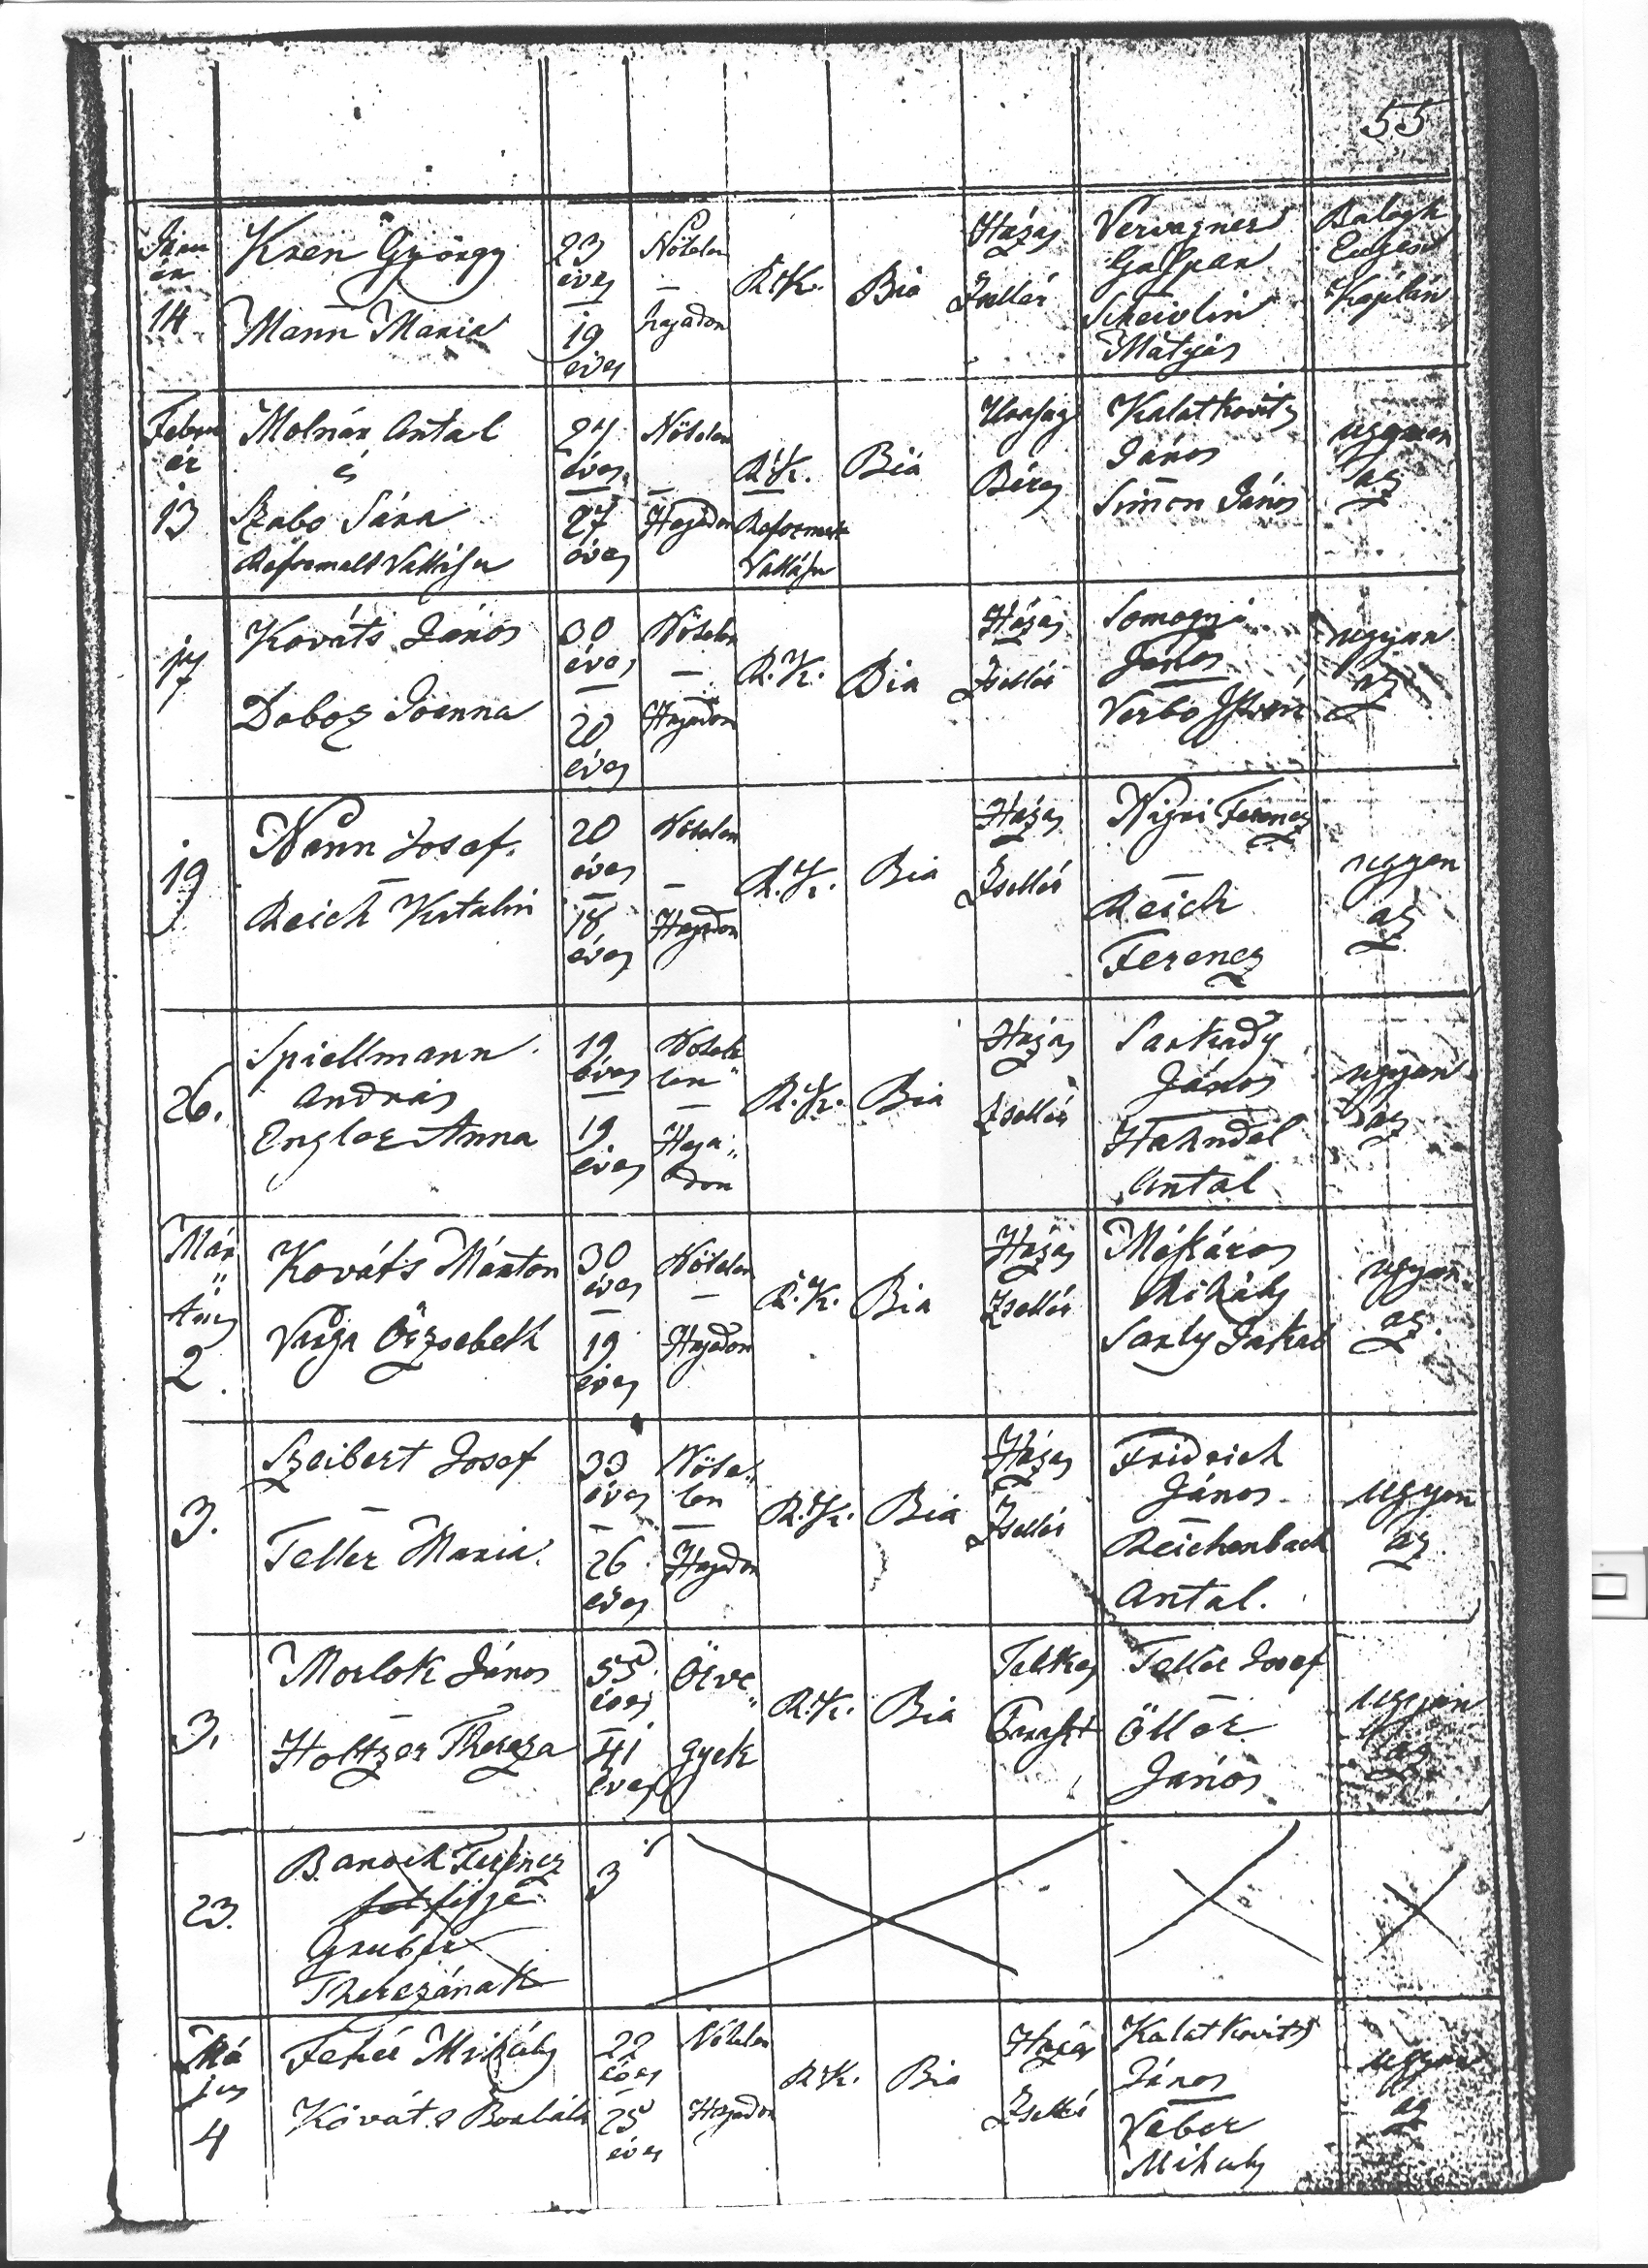 55
Janu
ár
14
Kren György
Mann Maria
23
éves
19
éves
Nőtelen
hajadon
R.K.
Bia
Házas
Zsellér
Vervagner
Gaspar
Scheivlin
Mátyás
Balogh
Kaplán
Febru
ár
13
Molnár Antal
és
Szabo Sára
Reformált Vallásu
24
éves
27
éves
Nőtelen
Hajadon
R.K.
Reformált
Vallásu
Bia
Béres
Kalatkovits
János
Simon János
ugyan
az
17
Kováts János
Doboz Joanna
30
éves
20
éves
Nőtelen
Hajadon
R.K.
Bia
Házas
Zsellér
Somogyi
János
Verbo István
ugyan
az
19
Mann Josef.
Reich Katalin
20
éves
18
éves
Nőtelen
Hajadon
R.K.
Bia
Házas
Zsellér
Nigri Ferencz
Reich
Ferencz
ugyan
az
26.
Spiellmann
András
Engler Anna
19
éves
19
éves
Nőtele
len
Haja
don
R.K.
Bia
Házas
Zsellér
Sarkady
János
Hahndel
Antal
ugyan
az
Már
tius
2
Kováts Márton
Varga Örzsebeth
30
éves
19
éves
Nőtelen
Hajadon
R.K.
Bia
Házas
Zsellér
Mészáros
Mihály
Sarly Jakab
ugyan
az
3.
Szeibert Josef
Teller Maria.
33
éves
26
éves
Nőte
len
Hajadon
R.K.
Bia
Házas
Zsellér
Fridrich
János
Reichenbach
Antal.
ugyan
az
3.
Morlok János
Holtzer Thereza
55
éves
41
éves
Özve
gyek
R.K.
Bia
Telkes
Paraszt
Teller Josef
Öller
János
ugyan
az
23.
Ferencz
Gruber
Therezának
3
Má
jus
4
Fehér Mihály
Kováts Borbála
22
éves
25
éves
Nőtelen
Hajadon
R.K.
Bia
Házas
Zsellér
Kalatkovits
János
Veber
Mihaly
ugyan
az